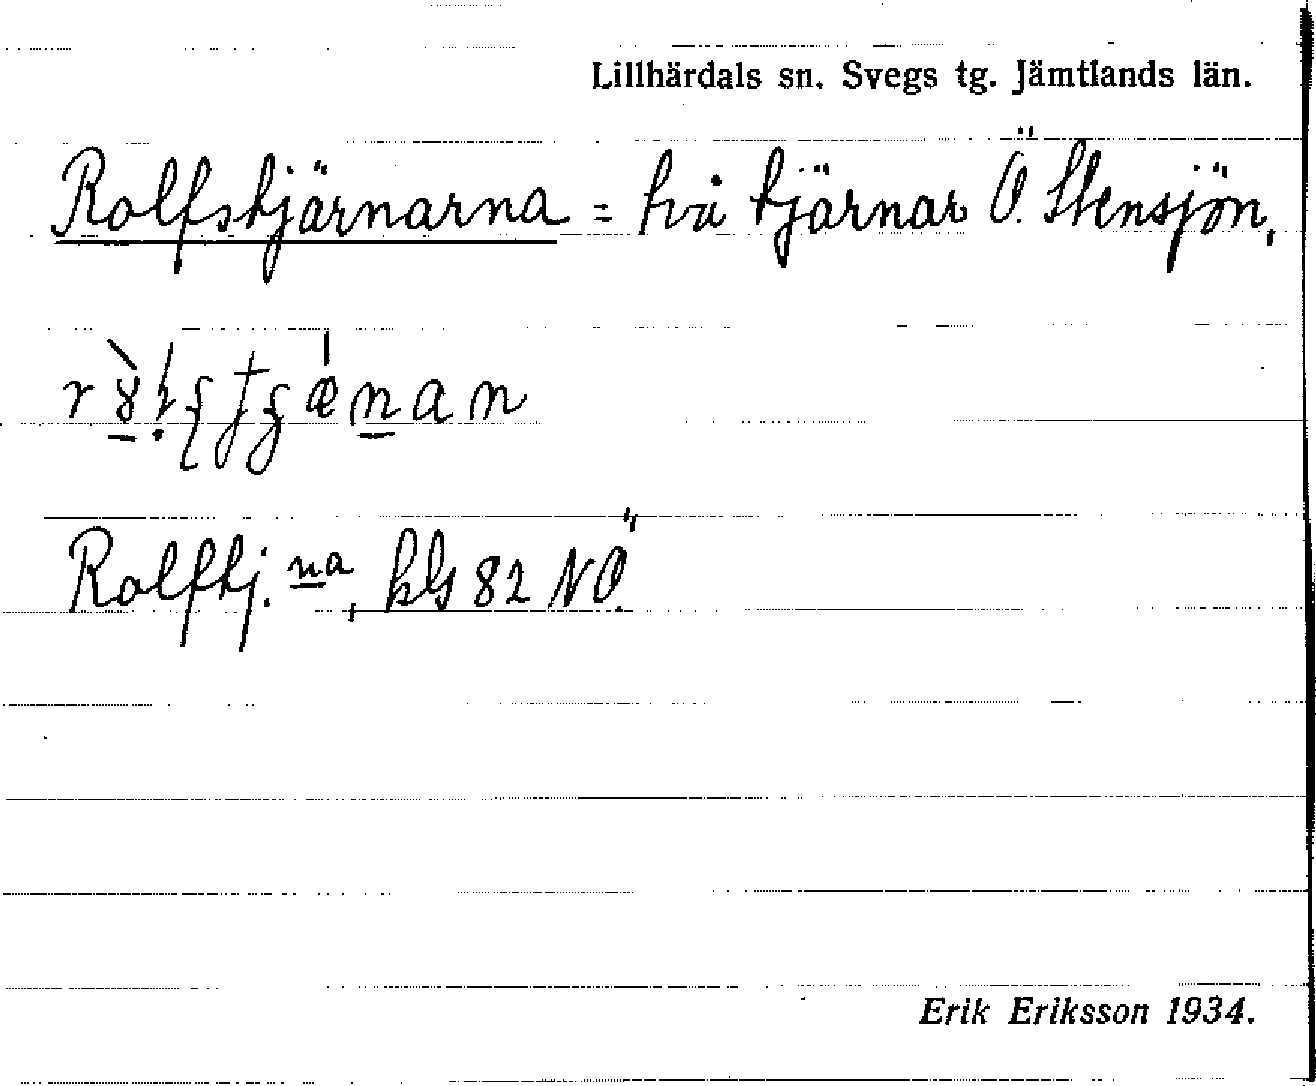 Lillhärdals sn. Svegs tg. Jämtlands län.
Rolfstjärnarna = två tjärnar Ö. Stensjön,
Rolftj. na, kbl 82 NÖ.
Erik Eriksson 1934.